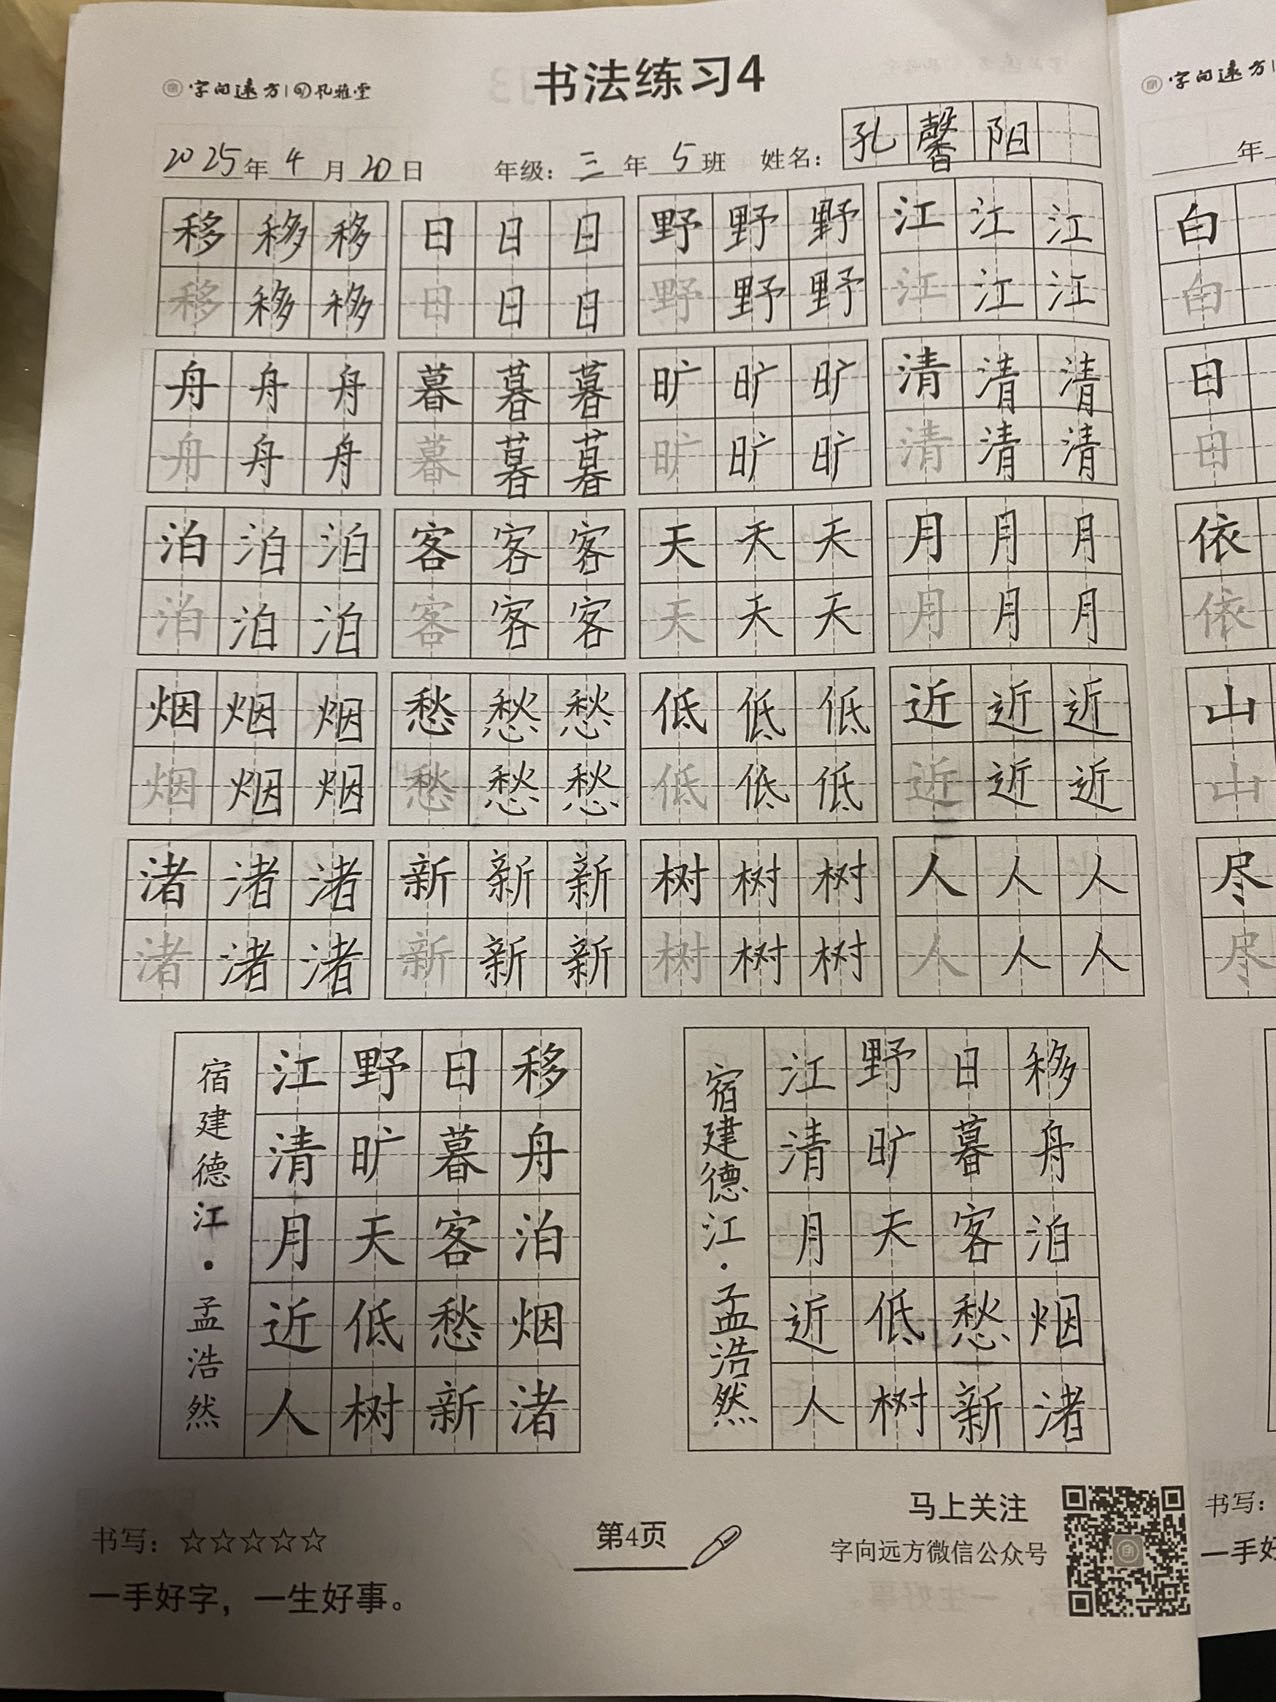 字向远方 孔雅堂
书法练习4
字向远方
2025年4月20日 年级：三年5班 姓名：孔馨阳
年
移移移 日日日 野野野 江江江 白
移移移 日日日 野野野 江江江 白
舟舟舟 暮暮暮 旷旷旷 清清清 日
舟舟舟 暮暮暮 旷旷旷 清清清 日
泊泊泊 客客客 天天天 月月月 依
泊泊泊 客客客 天天天 月月月 依
烟烟烟 愁愁愁 低低低 近近近 山
烟烟烟 愁愁愁 低低低 近近近 山
渚渚渚 新新新 树树树 人人人 尽
渚渚渚 新新新 树树树 人人人 尽
移舟泊烟渚
日暮客愁新
野旷天低树
江清月近人
宿建德江·孟浩然
移舟泊烟渚
日暮客愁新
野旷天低树
江清月近人
宿建德江·孟浩然
书写：☆☆☆☆☆
一手好字，一生好事。
第4页
马上关注
字向远方微信公众号
书写：
一手好